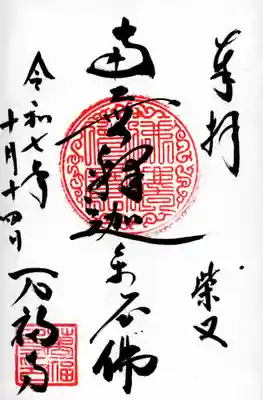 奉拝
柴又
南無釋迦牟尼佛
令和七年
十月十四日
万福寺